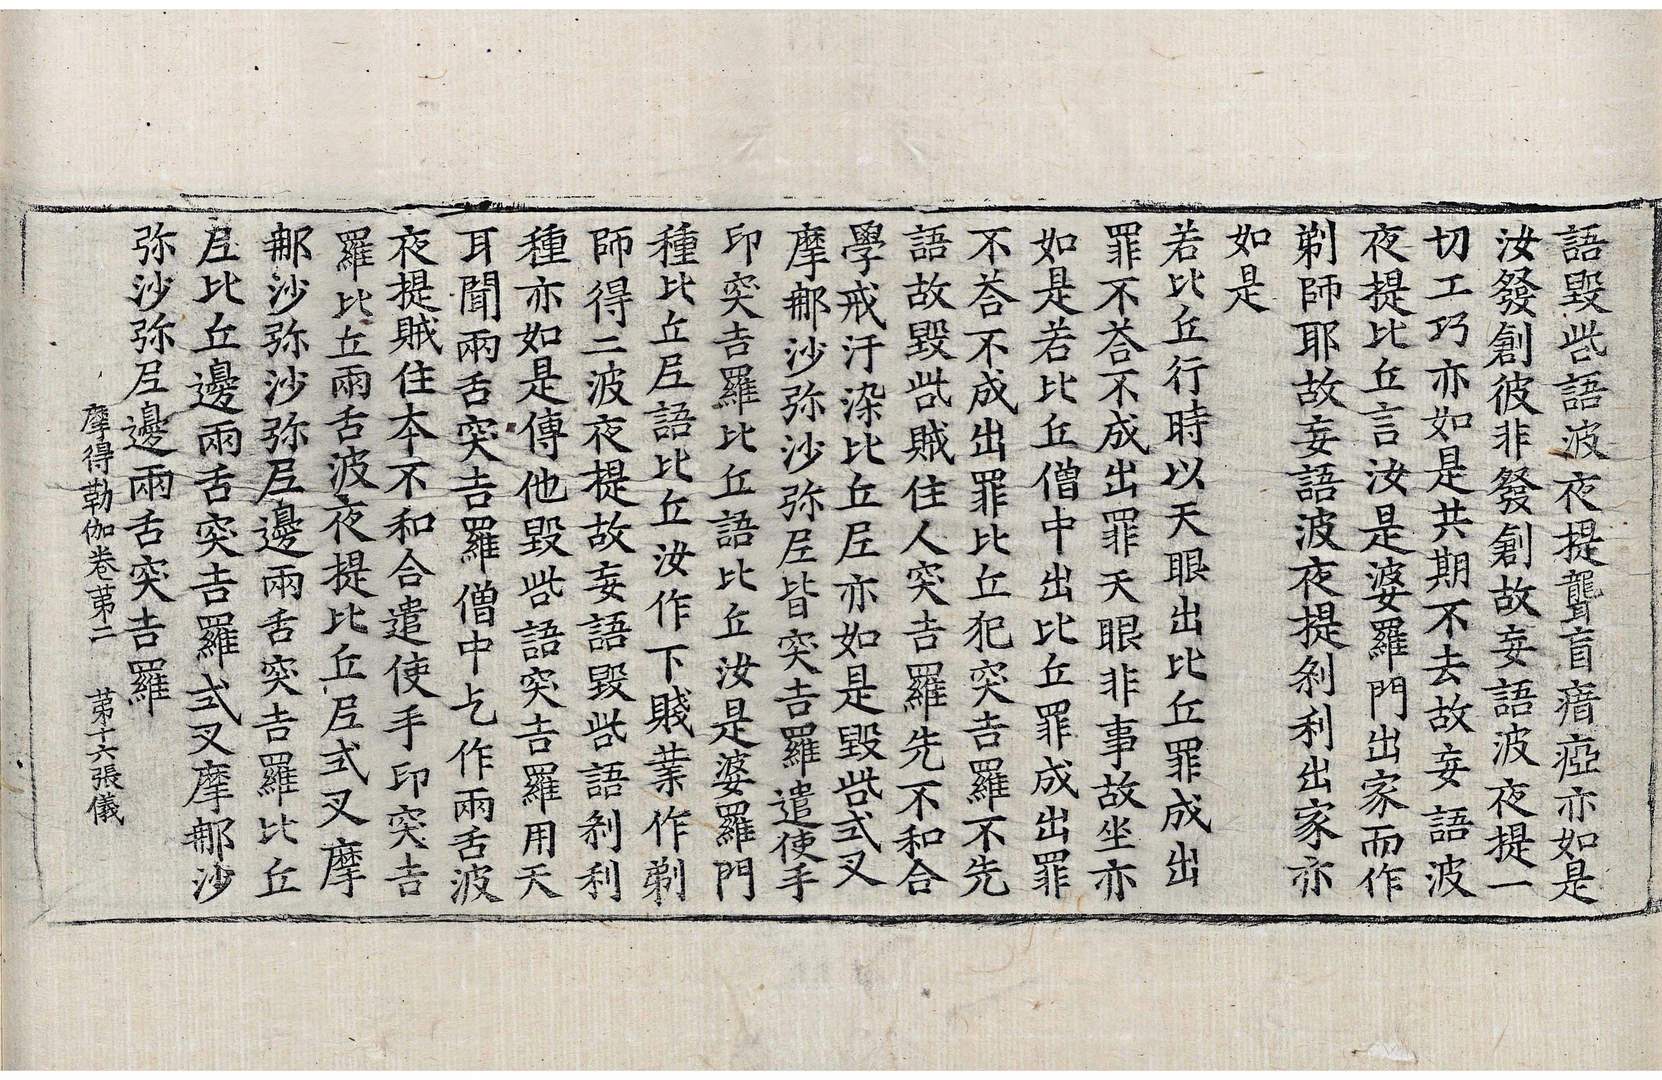 語毀呰語波夜提聾盲瘖瘂亦如是
汝發創彼非發創故妄語波夜提一
切工巧亦如是共期不去故妄語波
夜提比丘言汝是婆羅門出家而作
剃師耶故妄語波夜提刹利出家亦
如是
若比丘行時以天眼出比丘罪成出
罪不荅不成出罪天眼非事故坐亦
如是若比丘僧中出比丘罪成出罪
不荅不成出罪比丘犯突吉羅不先
語故毀呰賊住人突吉羅先不和合
學戒汙染比丘尼亦如是毀呰式叉
摩那沙弥沙弥尼皆突吉羅遣使手
印突吉羅比丘語比丘汝是婆羅門
種比丘尼語比丘汝作下賤業作剃
師得二波夜提故妄語毀呰語刹利
種亦如是傳他毀呰語突吉羅用天
耳聞兩舌突吉羅僧中乞作兩舌波
夜提賊住本不和合遣使手印突吉
羅比丘兩舌波夜提比丘尼式叉摩
那沙弥沙弥尼邊兩舌突吉羅比丘
尼比丘邊兩舌突吉羅式叉摩那沙
弥沙弥尼邊兩舌突吉羅
摩得勒伽卷苐二　苐十六張儀